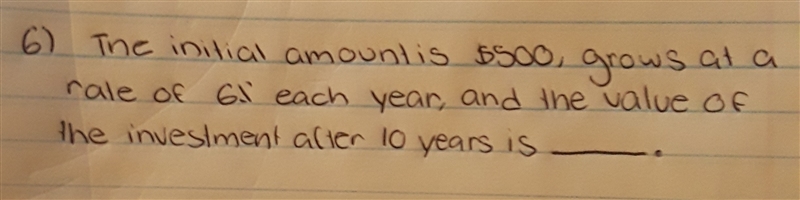 6) The initial amount is $500, grows at a
rate of 6% each year, and the value of
the investment after 10 years is ______.